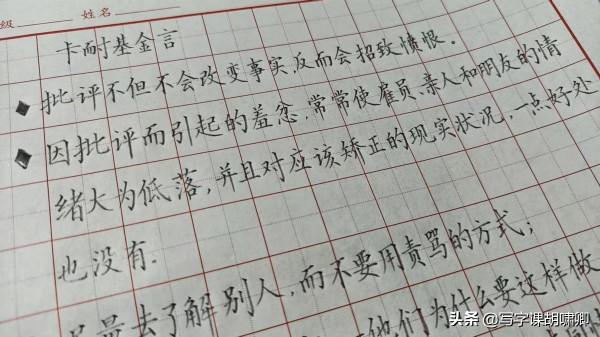 级 姓名
卡耐基金言
◆ 批评不但不会改变事实,反而会招致愤恨.
◆ 因批评而引起的羞忿,常常使雇员、亲人和朋友的情
绪大为低落,并且对应该矫正的现实状况,一点好处
也没有.
去了解别人,而不要用责骂的方式;
他们为什么要这样做
头条 @写字课胡啸卿